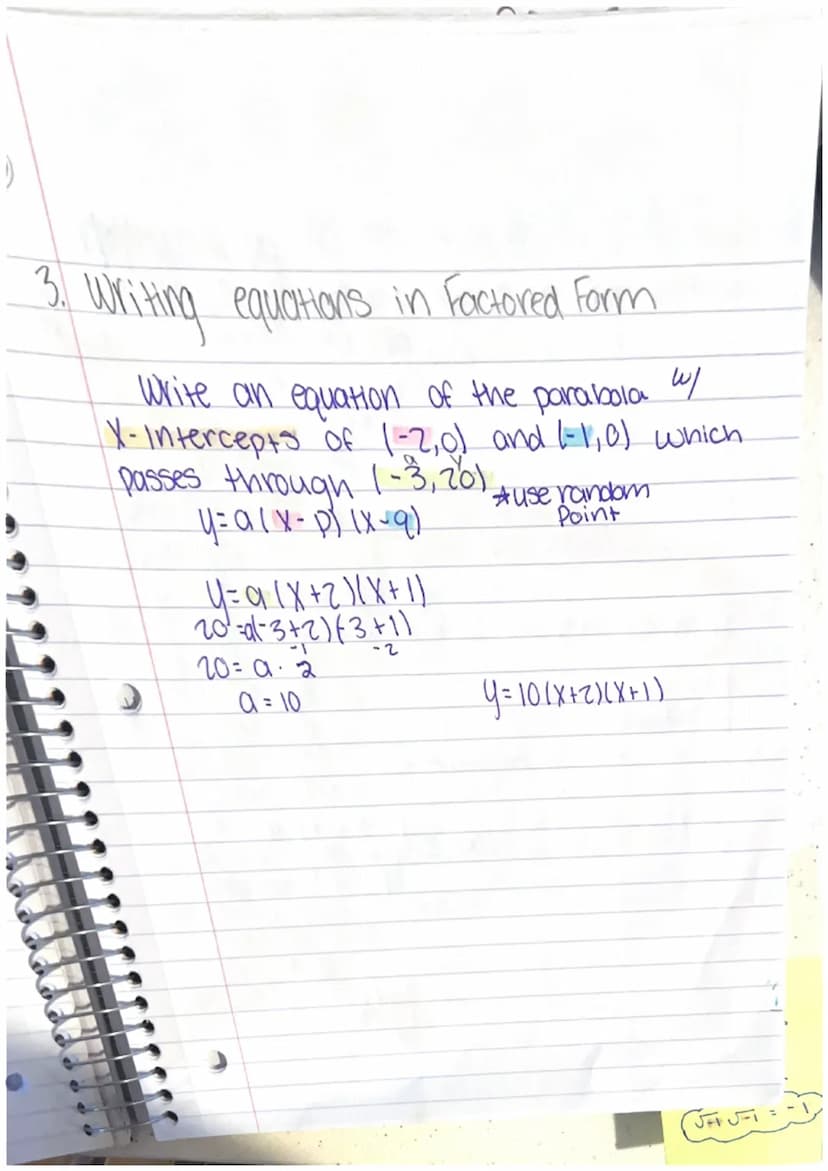 3. Writing equations in Factored Form
Write an equation of the parabola w/
X-Intercepts of (-2,0) and (-1,0) which
passes through (-3,20) *use random
Point
y=a(x-p)(x-q)
y=a(x+2)(x+1)
20=a(-3+2)(-3+1)
-1 -2
20=a·2
a=10 y=10(x+2)(x+1)
√-1 √-1 = -1